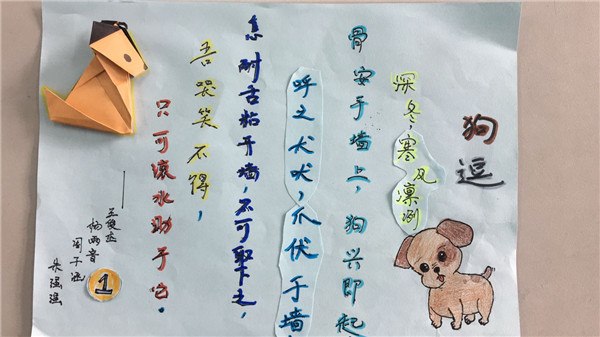 狗逗
深冬，寒风凛冽
骨安于墙上，狗兴即起
呼之犬吠，爪伏于墙
怎耐舌粘于墙，不可取之，
吾哭笑不得，
只可滚水助于它。
杨雨音
周子涵
1